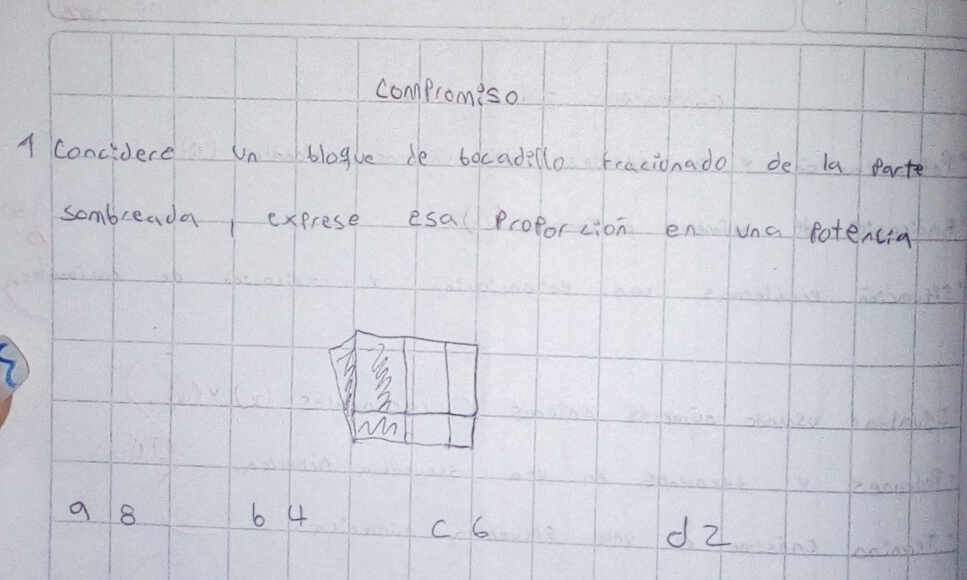 Compromiso
1 Concidere un bloque de bocadillo fracionado de la parte
sombreada, exprese esa proporción en una potencia
a 8 b 4 c 6 d 2